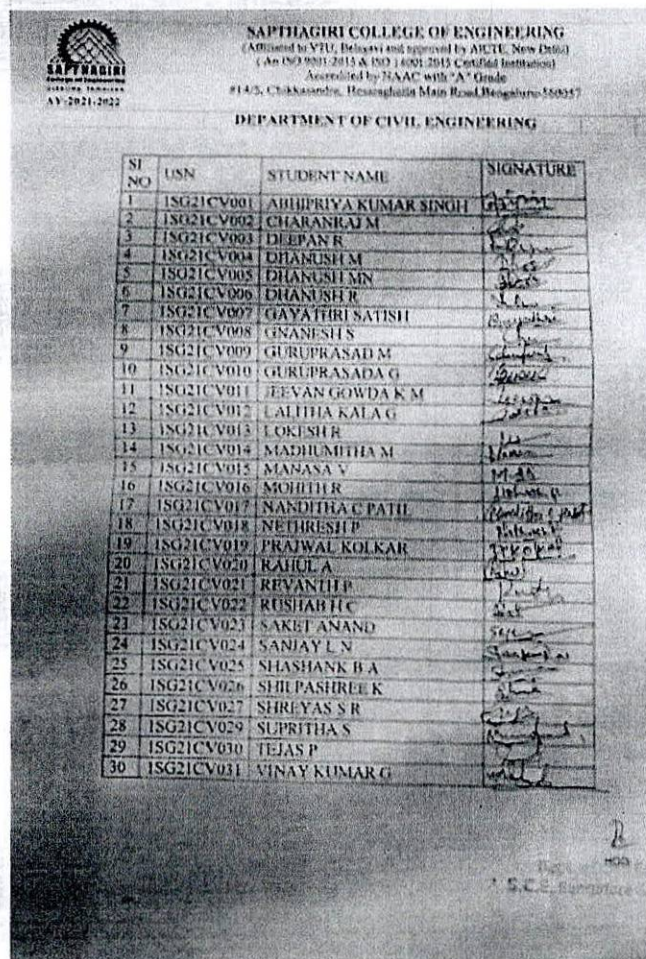 SAPTHAGIRI COLLEGE OF ENGINEERING
(Affiliated to VTU, Belagavi and approved by AICTE, New Delhi)
( An ISO 9001:2015 & ISO 14001:2015 Certified Institution)
Accredited by NAAC with "A" Grade
#14/5, Chikkasandra, Hesaraghatta Main Road, Bengaluru-560057
SAPTHAGIRI
College of Engineering
AY-2021-2022
DEPARTMENT OF CIVIL ENGINEERING
SI NO USN STUDENT NAME SIGNATURE
1 1SG21CV001 ABHIPRIYA KUMAR SINGH
2 1SG21CV002 CHARANRAJ M
3 1SG21CV003 DEEPAN R
4 1SG21CV004 DHANUSH M
5 1SG21CV005 DHANUSH MN
6 1SG21CV006 DHANUSH R
7 1SG21CV007 GAYATHRI SATISH
8 1SG21CV008 GNANESH S
9 1SG21CV009 GURUPRASAD M
10 1SG21CV010 GURUPRASADA G
11 1SG21CV011 JEEVAN GOWDA K M
12 1SG21CV012 LALITHA KALA G
13 1SG21CV013 LOKESH R
14 1SG21CV014 MADHUMITHA M
15 1SG21CV015 MANASA V
16 1SG21CV016 MOHITH R
17 1SG21CV017 NANDITHA C PATIL
18 1SG21CV018 NETHRESH P
19 1SG21CV019 PRAJWAL KOLKAR
20 1SG21CV020 RAHUL A
21 1SG21CV021 REVANTH P
22 1SG21CV022 RUSHAB H C
23 1SG21CV023 SAKET ANAND
24 1SG21CV024 SANJAY L N
25 1SG21CV025 SHASHANK B A
26 1SG21CV026 SHILPASHREE K
27 1SG21CV027 SHREYAS S R
28 1SG21CV029 SUPRITHA S
29 1SG21CV030 TEJAS P
30 1SG21CV031 VINAY KUMAR G
HOD
S.C.E, Bangalore